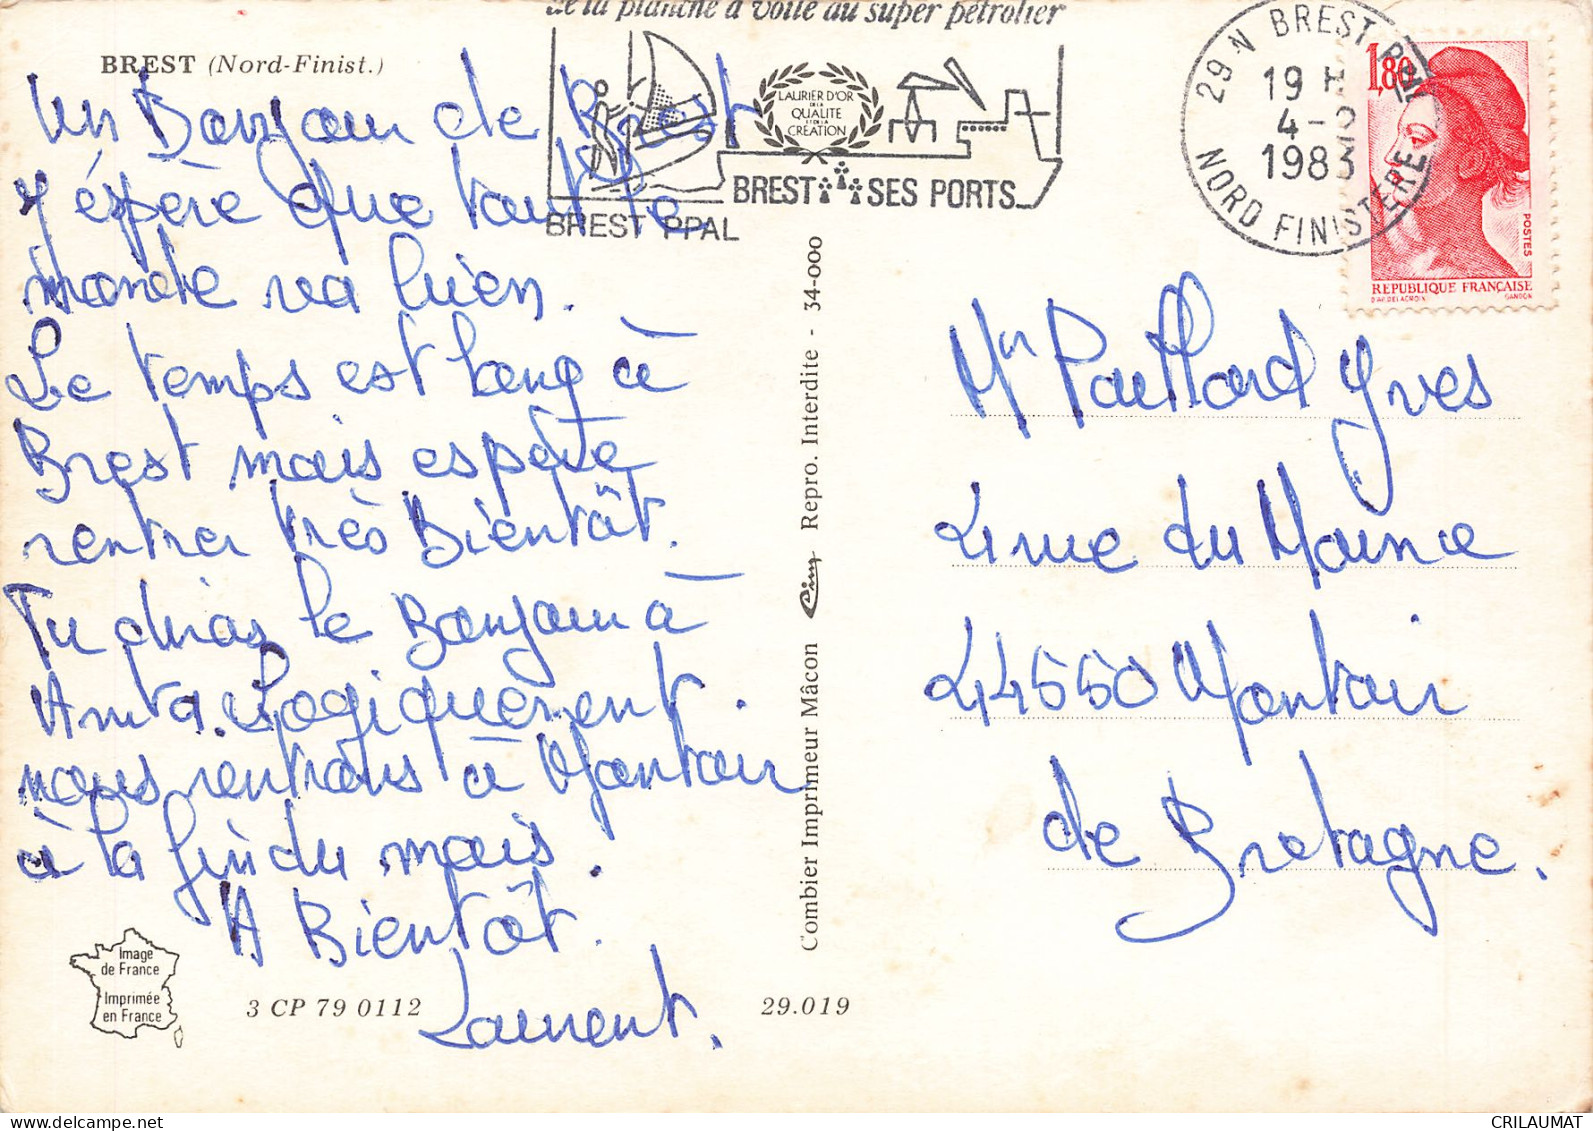 de la planche à voile au super pétrolier
BREST (Nord-Finist.)
LAURIER D'OR
DE LA
QUALITE
ET DE LA
CREATION
BREST SES PORTS
BREST PPAL
29 N BREST PPAL
19 H
4-2
1983
NORD FINISTERE
1,80
POSTES
REPUBLIQUE FRANÇAISE
D'AP. DELACROIX GANDON
Un Bonjour de Brest
J'éspère que tout le
monde va bien.
Le temps est long à
Brest mais espère
rentrer très Bientôt.
Tu diras le Bonjour à
Anita. Logiquement.
nous rentrons à Montoir
à la fin du mois.
A Bientôt.
Laurent.
Image
de France
Imprimée
en France
3 CP 79 0112
29.019
Combier Imprimeur Mâcon Cim Repro. Interdite - 34-000
Mr Paillard Yves
4 rue du Maine
44550 Montoir
de Bretagne.
CRILAUMAT